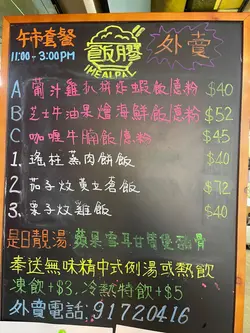 午市套餐
11:00 - 3:00PM
飯膠
IMEALPAL
外賣
A 葡汁雞扒拼炸蝦飯/意粉 $40
B 芝士牛油果燴海鮮飯/意粉 $52
C 咖喱牛腩飯/意粉 $45
1. 瑤柱蒸肉餅飯 $40
2. 茄子炆黃立倉飯 $72
3. 栗子炆雞飯 $40
是日靚湯：蘋果雪耳
奉送無味精中式例湯或熱飲
凍飲+$3. 冷熱特飲+$5
外賣電話：91720416